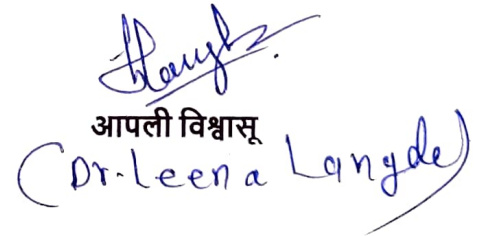 आपली विश्वासू
(Dr. Leena Langde)